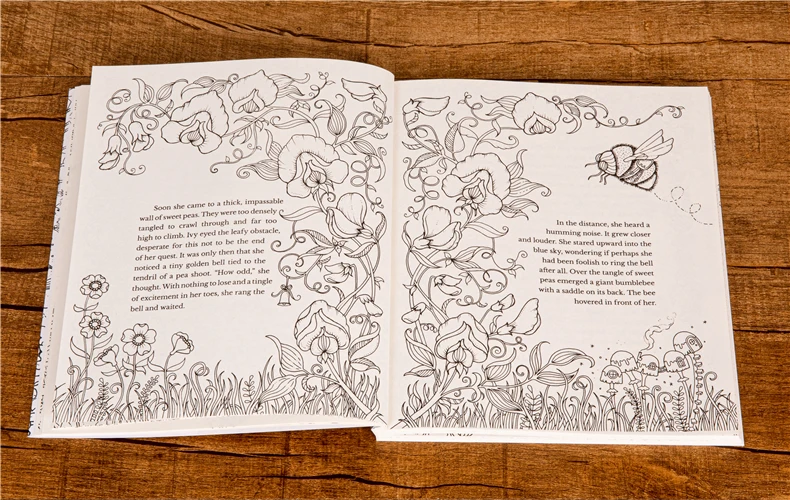 Soon she came to a thick, impassable
wall of sweet peas. They were too densely
tangled to crawl through and far too
high to climb. Ivy eyed the leafy obstacle,
desperate for this not to be the end
of her quest. It was only then that she
noticed a tiny golden bell tied to the
tendril of a pea shoot. “How odd,” she
thought. With nothing to lose and a tingle
of excitement in her toes, she rang the
bell and waited.
In the distance, she heard a
humming noise. It grew closer
and louder. She stared upward into the
blue sky, wondering if perhaps she
had been foolish to ring the bell
after all. Over the tangle of sweet
peas emerged a giant bumblebee
with a saddle on its back. The bee
hovered in front of her.